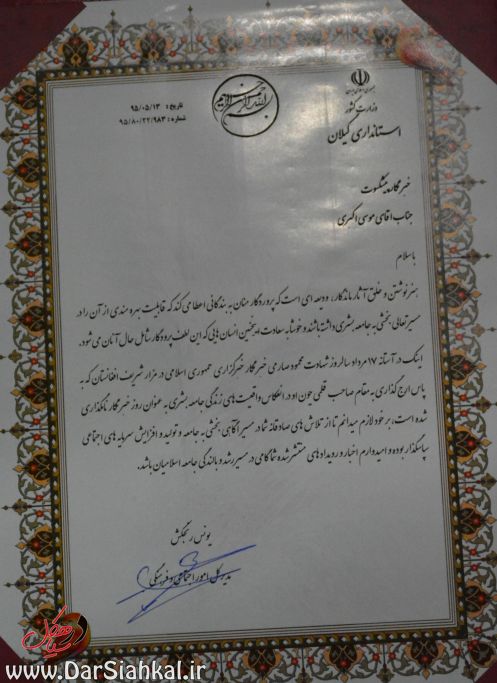 بسم الله الرحمن الرحیم
وزارت کشور
استانداری گیلان
تاریخ: ۹۵/۰۵/۱۳
شماره: ۹۵/۸۰/۲۲/۹۸۳
خبرنگار پیشکسوت
جناب آقای موسی اکبری
باسلام
هنر نوشتن و خلق آثار ماندگار، ودیعه ای است که پروردگار منان به بندگانی اعطا می کند که قابلیت بهره مندی از آن را در
مسیر تعالی بخشی به جامعه بشری داشته باشند و خوشا به سعادت اینچنین انسان هایی که این لطف پروردگار شامل حال آنان می شود.
اینک در آستانه ۱۷ مرداد سالروز شهادت محمود صارمی خبرنگار خبرگزاری جمهوری اسلامی در مزار شریف افغانستان که به
پاس ارج گذاری به مقام صاحب قلمی چون او در انعکاس واقعیت های زندگی جامعه بشری به عنوان روز خبرنگار نامگذاری
شده است، بر خود لازم میدانم تا از تلاش های صادقانه شما در مسیر آگاهی بخشی به جامعه و تولید و افزایش سرمایه های اجتماعی
سپاسگذار بوده و امیدوارم اخبار و رویدادهای منتشر شده شما گامی در مسیر رشد و بالندگی جامعه اسلامیان باشد.
یونس رنجکش
مدیر کل امور اجتماعی و فرهنگی
سیاهکل
www.DarSiahkal.ir